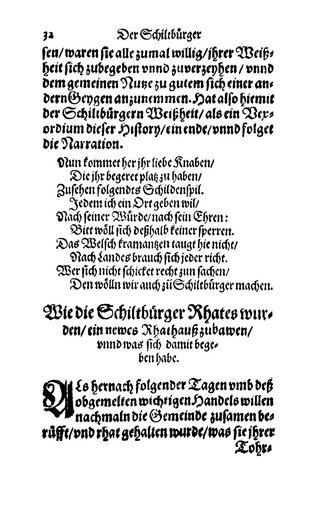 32 Der Schiltbürger
sen/waren sie alle zumal willig/jhrer Weiß-
heit sich zubegeben vnnd zuverzeyhen/vnnd
dem gemeinen Nutze zu gutem sich einer an-
dern Geygen anzunemmen. Hat also hiemit
der Schiltbürgern Weißheit/als ein Vex-
ordium dieser History/ein ende/vnnd folget
die Narration.
Nun kommet her jhr liebe Knaben/
Die jhr begeret platz zu haben/
Zusehen folgendts Schildenspil.
Jedem ich ein Ort geben wil/
Nach seiner Würde/nach sein Ehren:
Bitt wöll sich deßhalb keiner sperren.
Das Welsch kramantzen taugt hie nicht/
Nach Landes brauch sich jeder richt.
Wer sich nicht schicket recht zun sachen/
Den wölln wir auch zů Schiltbürger machen.
Wie die Schiltbürger Rhates wur-
den/ein newes Rhathauß zubawen/
vnnd was sich damit bege-
ben habe.
Als hernach folgender Tagen vmb deß
obgemelten wichtigen Handels willen
nachmaln die Gemeinde zusamen be-
rüfft/vnd rhat gehalten wurde/was sie jhrer
Tohr-